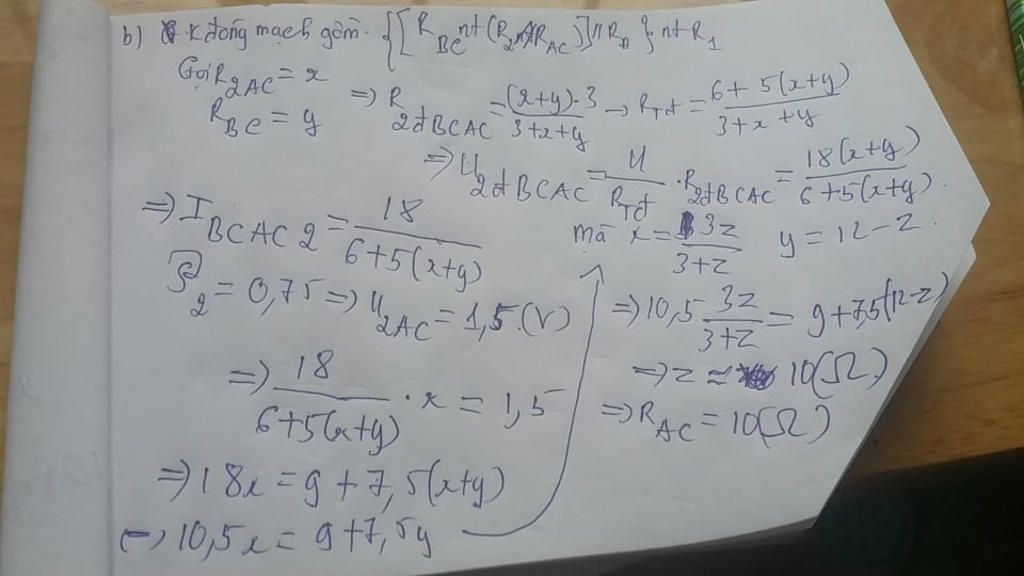 b) K đóng mạch gồm. {[R_BC nt (R_2 // R_AC)] // R_Đ} nt R_1
Gọi R_2AC = x
R_BC = y
=> R_2đBCAC = (x+y).3 / 3+x+y → R_Tđ = 6+5(x+y) / 3+x+y
=> U_2đBCAC = U / R_Tđ . R_2đBCAC = 18(x+y) / 6+5(x+y).
=> I_BCAC2 = 18 / 6+5(x+y)
P_2 = 0,75 => U_2AC = 1,5.(V)
=> 18 / 6+5(x+y) . x = 1,5
=> 18x = 9 + 7,5(x+y)
<=> 10,5x = 9+7,5y
mà x = 3z / 3+z y = 12-z.
=> 10,5 3z / 3+z = 9+7,5(12-z)
=> z ≈ 10(Ω)
=> R_AC = 10(Ω)